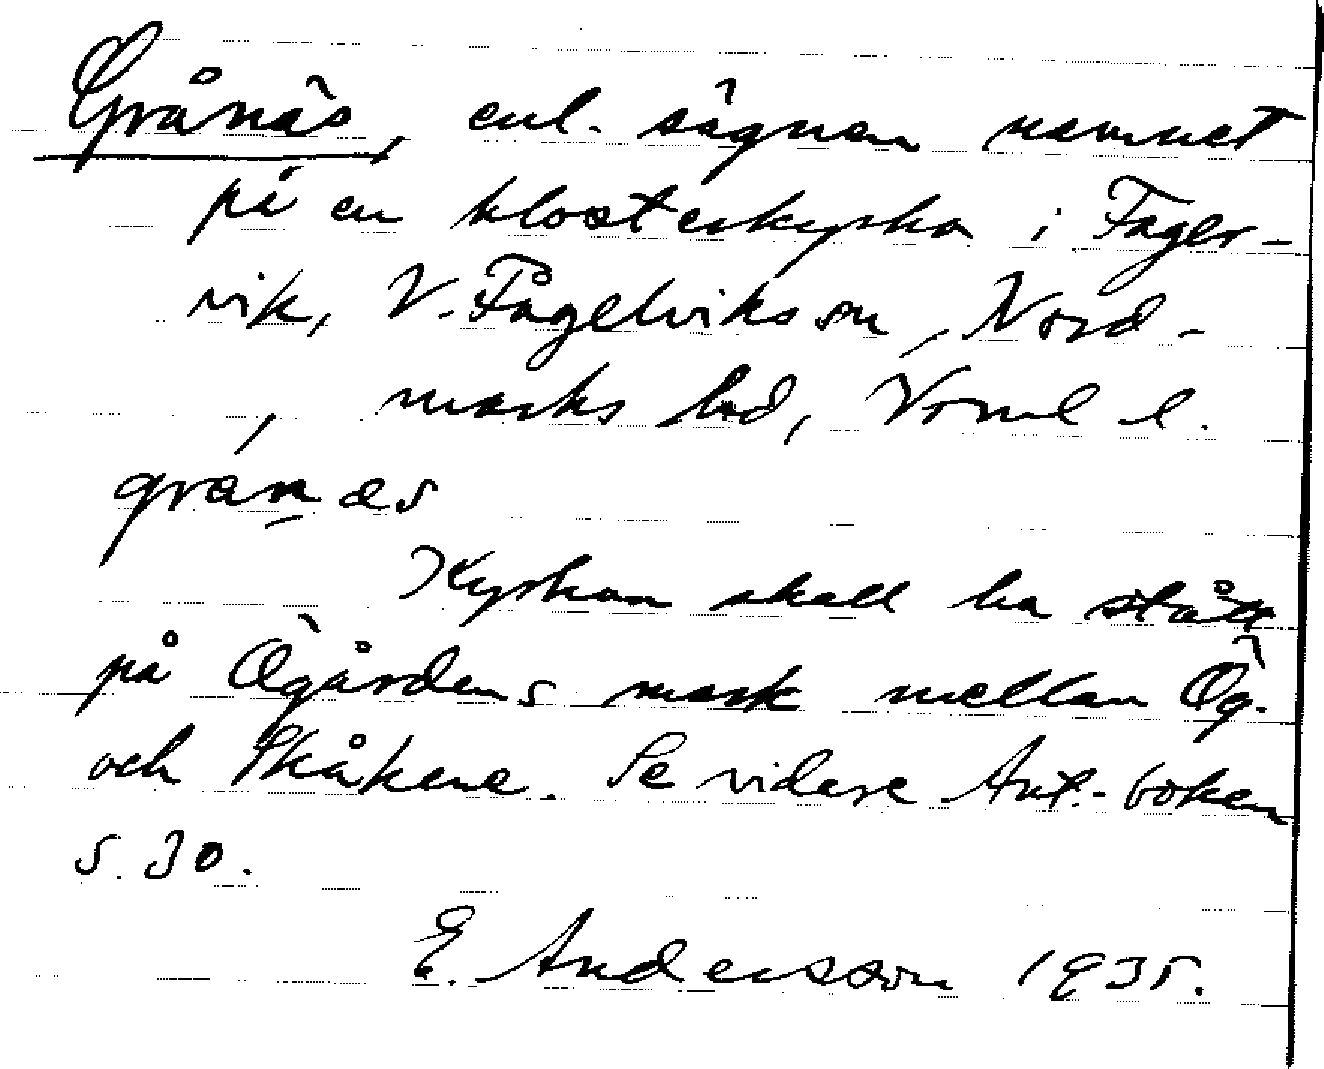 Grånäs, enl. sägnen namnet
på en klosterkyrka i Fager-
vik, V. Fågelviks sn, Nord-
marks hd, Vrml l.
gránæs
Kyrkan skall ha stått
på Ögårdens mark mellan Ög.
och Skåkene. Se vidare Ant.-boken
s. 30.
E. Andersson 1935.